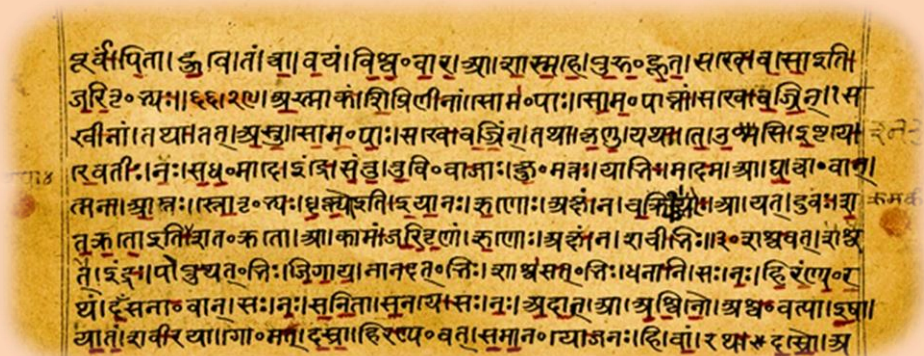 तं। त्वा। वयं। विश्व॰वार। आ। शास्महे। पुरु॰हूत। सखे। वसो इति।
जरितृ॰भ्यः॥ अस्माकं। शिप्रिणीनां। सोम॰पाः। सोम॰पाव्नां। सखे। वज्रिन्। स
खीनां। तथा। तत्। अस्तु। सोम॰पाः। सखे। वज्रिन्। तथा। कृणु। यथा। ते। उश्मसि। इष्टये।
रेवतीः। नः। सध॰मादे। इंद्रे। संतु। तुवि॰वाजाः। क्षु॰मंतः। याभिः। मदेम। आ। घ। त्वा॰वान्।
त्मना। आप्तः। स्तोतृ॰भ्यः। धृष्णो इति। इयानः। ऋणोः। अक्षं। न। चक्र्योः। आ। यत्। दुवः। श
तक्रतो इति शत॰क्रतो। आ। कामं। जरितॄणां। ऋणोः। अक्षं। न। शचीभिः॥
त्। इंद्रः। पोप्रुथत्॰भिः। जिगाय। नानदत्॰भिः। शाश्वसत्॰भिः। धनानि। सः। नः। हिरण्य॰र
थं। दंसना॰वान्। सः। नः। सनिता। सनये। सः। नः। अदात्। आ। अश्विनौ। अश्व॰वत्या। इषा।
यातं। शवीरया। गो॰मत्। दस्रा। हिरण्य॰वत्। समान॰योजनः। हि। वां। रथः। दस्रौ। अ